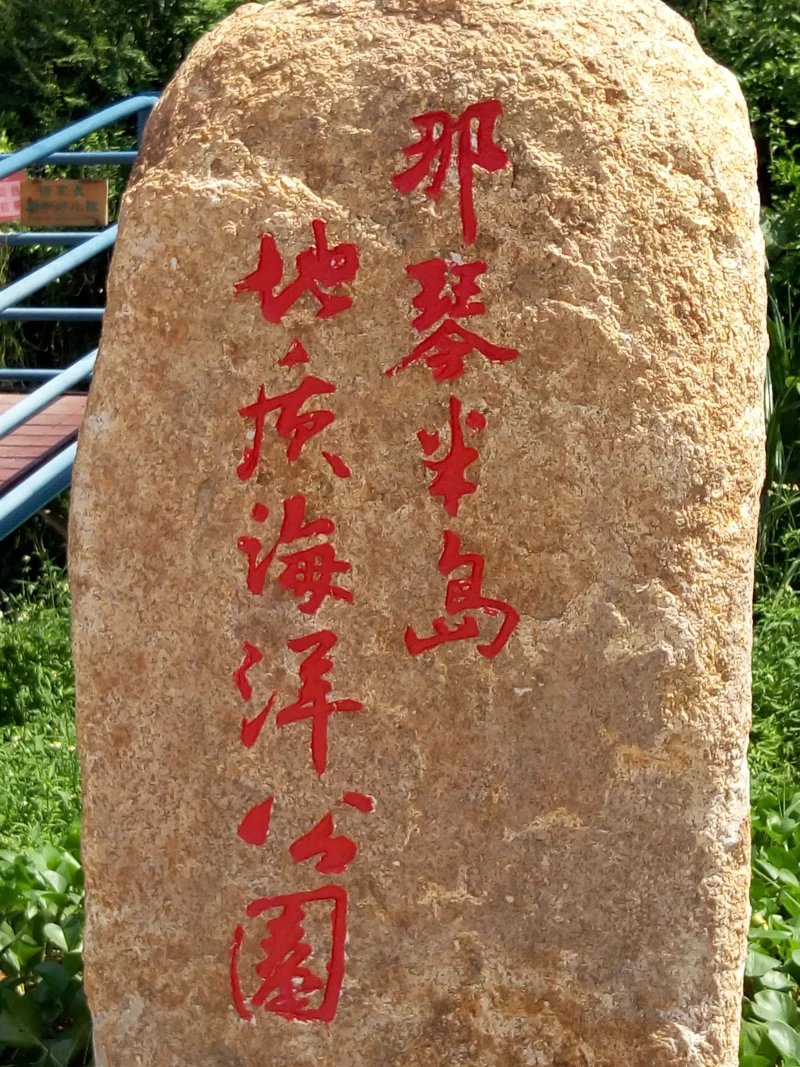 那琴半岛
地质海洋公園